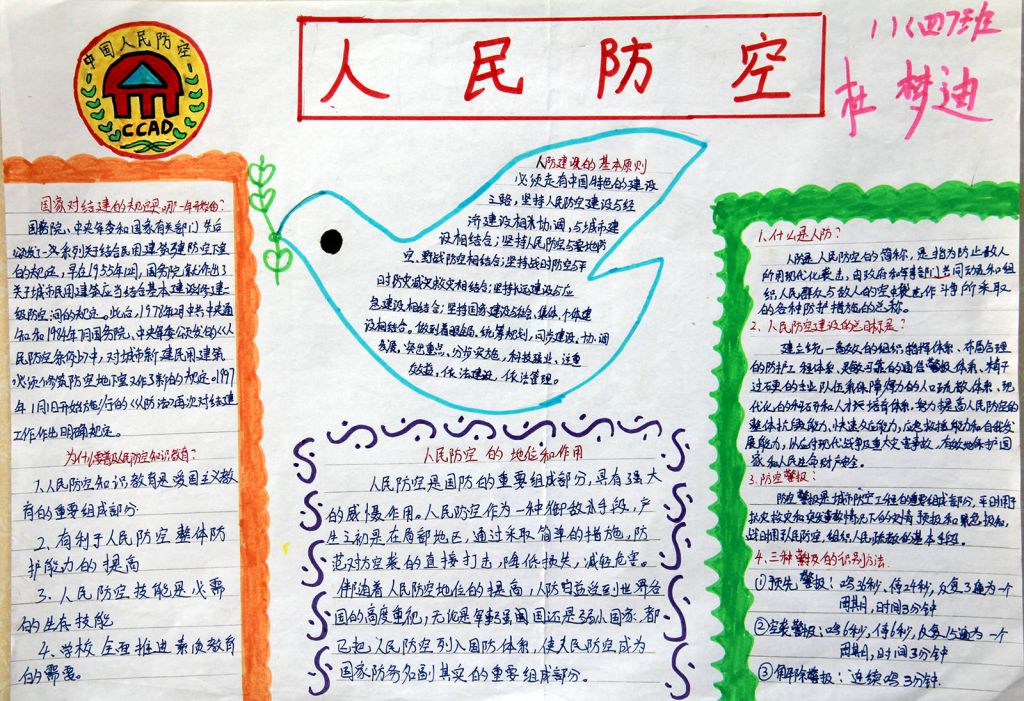 中国人民防空
CCAD
人民防空
八(四)班
杜梦迪
国家对结建的规定哪一年开始的?
国务院、中央军委和国家有关部门先后
颁发了一系列关于结合民用建筑建防空室
的规定，早在1955年4月，国务院就作出了
关于城市民用建筑应当结合基本建设修建二
级防空洞的规定。此后，1978年2月中共中央通
知和1984年7月国务院、中央军委公颁发的《人
民防空条例》中，对城市新建民用建筑
必须修筑防空地下室又作了新的规定。1997
年1月1日开始施行的《人防法》再次对结建
工作作出明确规定。
为什么要普及人民防空知识教育?
1.人民防空知识教育是爱国主义教
育的重要组成部分.
2、有利于人民防空整体防
护能力的提高
3.人民防空技能是必需
的生存技能
4.学校全面推进素质教育
的需要。
人防建设的基本原则
必须走有中国特色的建设
之路，坚持人民防空建设与经
济建设相来协调，与城市建
设相结合；坚持人民防空与要地防
空、野战防空相结合；坚持战时防空与平
时防灾减灾救灾相结合；坚持长远建设与应
急建设相结合；坚持国家建设与社会、集体、个体建
设相结合。做到着眼全局，统筹规划，同步建设，协调
发展，突出重点，分步实施，科技强业，注重
效益，依法建设，依法管理。
人民防空的地位和作用
人民防空是国防的重要组成部分，具有强大
的威慑作用。人民防空作为一种御敌手段，产
生之初是在局部地区，通过采取简单的措施，防
范对空袭的直接打击，降低损失，减轻危害。
伴随着人民防空地位的提高，人防日益受到世界各
国的高度重视，无论是军事强国还是弱小国家，都
已把人民防空列入国防体系，使人民防空成为
国家防务名副其实的重要组成部分.
1.什么是人防?
人防是人民防空的简称，是指为防止敌人
所用现代化袭击，由政府和军事部门共同动员和组
织人民群众与敌人的空中袭击作斗争所采取
的各种防护措施的总称。
2、人民防空建设的总目标是?
建立统一高效的组织指挥体系、布局合理
的防护工程体系、灵敏可靠的通信警报体系、精干
过硬的专业队伍系保障有力的人口疏散体系、现
代化的科研和人才培育体系，努力提高人民防空的
整体抗毁能力、快速反应能力，应急救援能力和自我发
展能力，从应付现代战争及重大灾害事故，有效地保护国
家和人民生命财产安全。
3.防空警报:
防空警报是城市防空工程的重要组成部分，平时用于
抗灾救灾和突发事故情况下的灾情预报和紧急报知，
战时用于人民防空，组织人民疏散的基本手段。
4.三种警报的识别方法
①预先警报：鸣36秒，停24秒，反复3遍为一个
周期，时间3分钟
②空袭警报：鸣6秒，停6秒，反复15遍为一个
周期，时间3分钟
③解除警报：连续鸣3分钟.